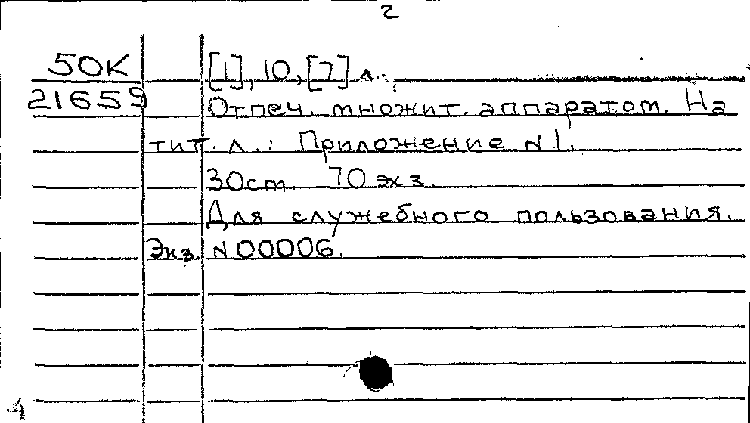 2
50К [1], 10, [7] л.
21659 Отпеч. множит. аппаратом. На
тит. л.: Приложение N1.
30ст. 70 экз.
Для служебного пользования.
Экз. N00006.
4